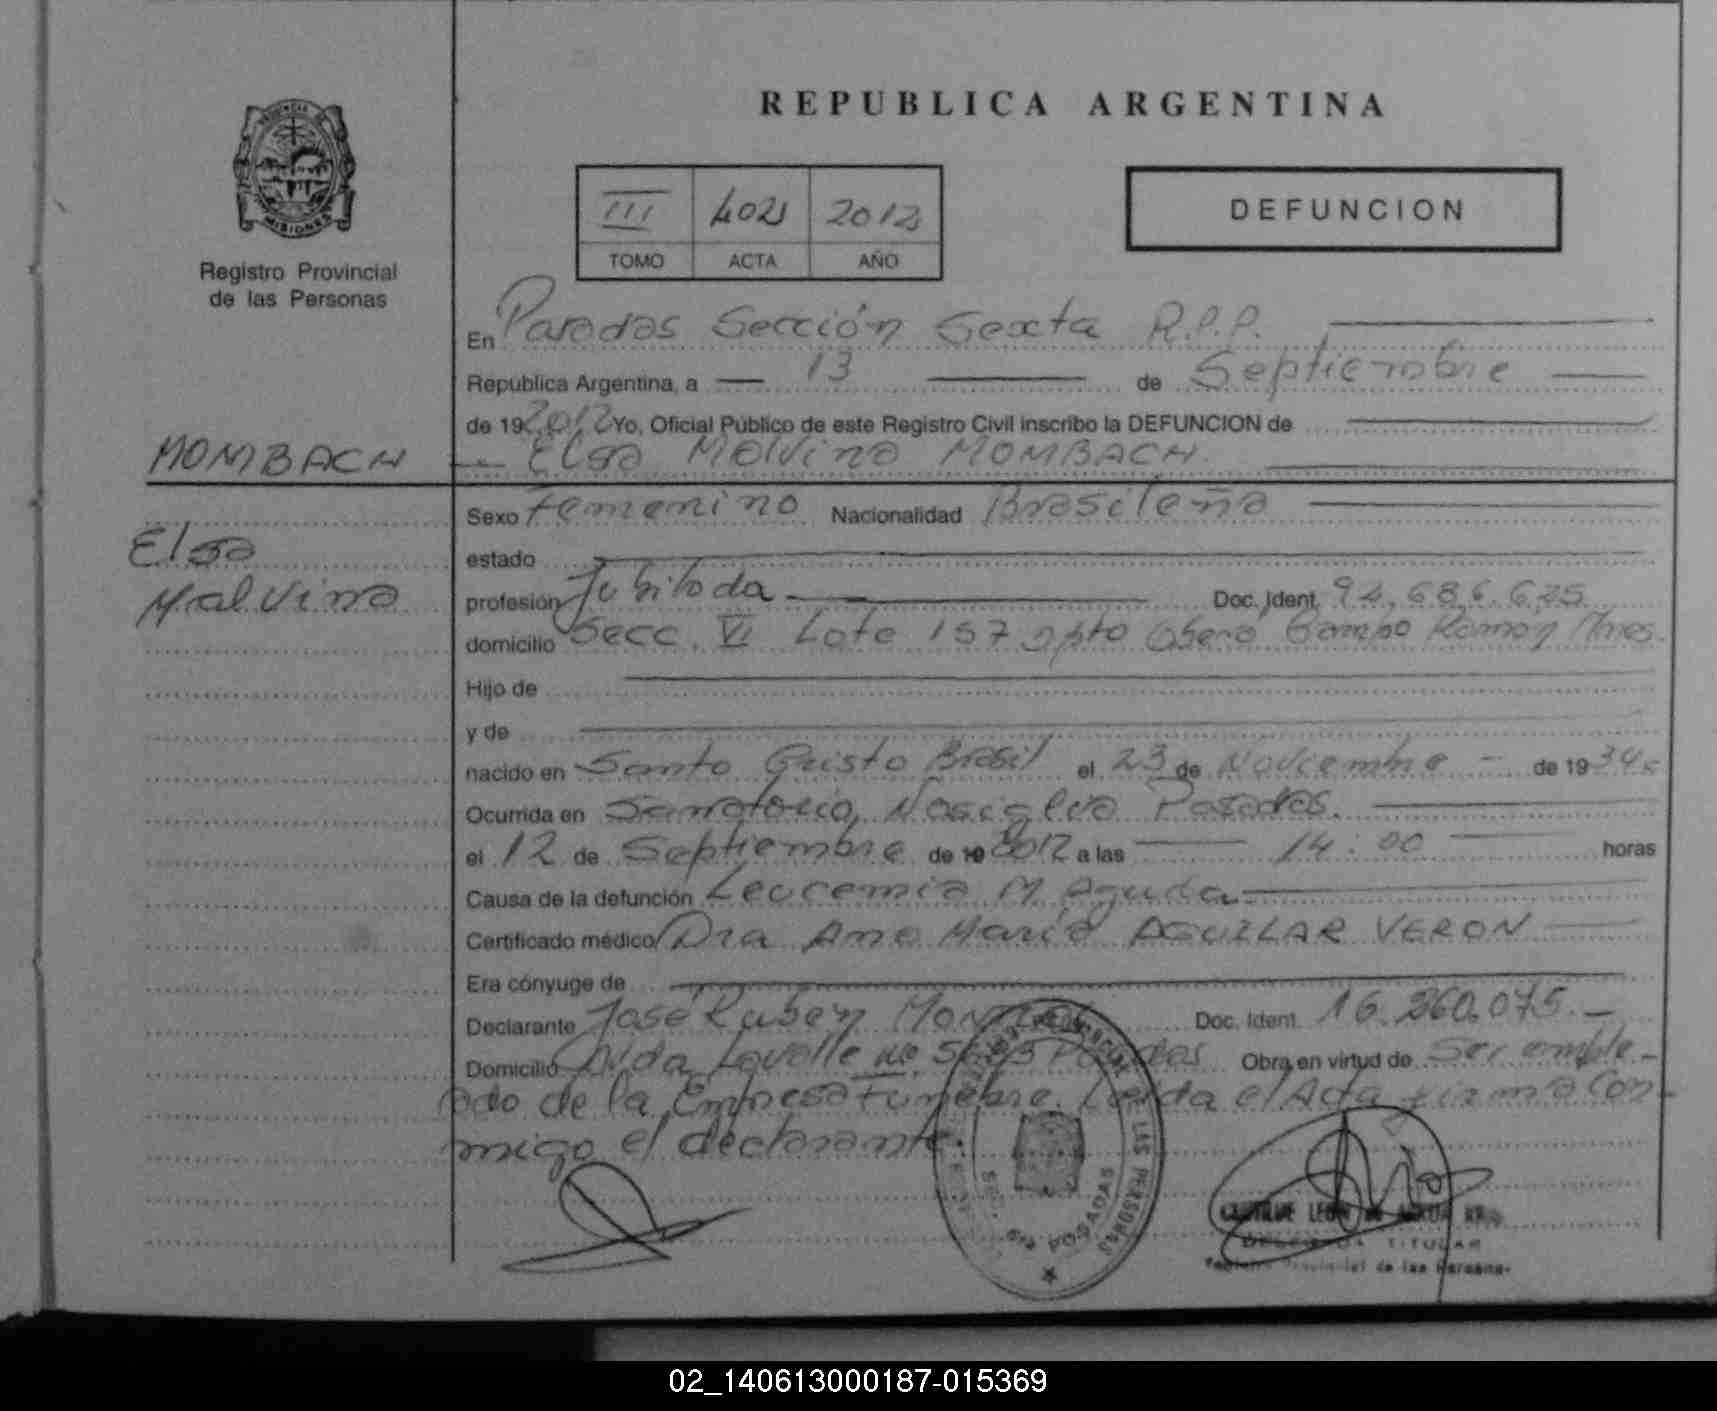 PROVINCIA DE
MISIONES
Registro Provincial
de las Personas
REPUBLICA ARGENTINA
III 402 2012
TOMO ACTA AÑO
DEFUNCION
En Posadas Sección Sexta R.P.P.
Republica Argentina, a 13 de Septiembre
de 19 2012 Yo, Oficial Público de este Registro Civil inscribo la DEFUNCION de
MOMBACH
Elsa Malvina MOMBACH
Elsa
Malvina
Sexo Femenino Nacionalidad Brasileña
estado
profesión Jubilada Doc. Ident. 92.686.625
domicilio Secc. VI Lote 157 dpto Obera Campo Ramon Mnes.
Hijo de
y de
nacido en Santo Cristo Brasil el 23 de Noviembre de 19 34
Ocurrida en Sanatorio Nosiglia Posadas.
el 12 de Septiembre de 19 2012 a las 14:00 horas
Causa de la defunción Leucemia M Aguda
Certificado médico Dra Ana María AGUILAR VERON
Era cónyuge de
Declarante José Ruben Doc. Ident. 16.260.075.-
Domicilio Avda Lavalle nº Posadas Obra en virtud de Ser emple-
ado de la Empresa Funebre. Leida el Acta firma con-
migo el declarante.
DE LAS PERSONAS
POSADAS
TITULAR
Provincial de las Personas
02_140613000187-015369